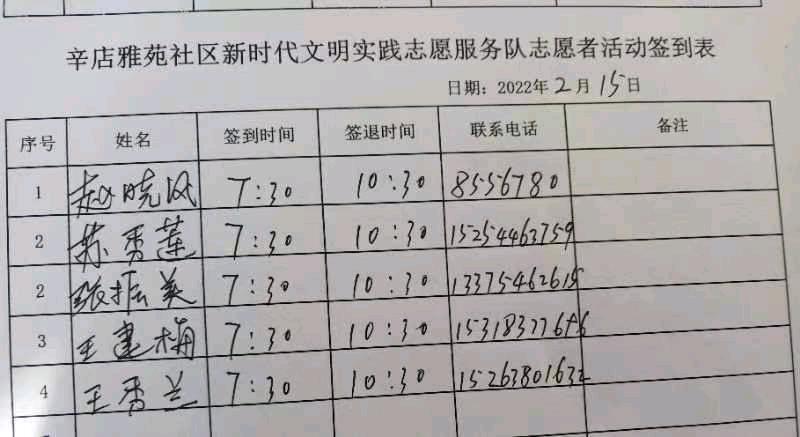 辛店雅苑社区新时代文明实践志愿服务队志愿者活动签到表
日期：2022年2月15日
序号 姓名 签到时间 签退时间 联系电话 备注
1 赵晓风 7:30 10:30 8556780
2 苏秀莲 7:30 10:30 15254463759
2 张振美 7:30 10:30 13375462615
3 王建梅 7:30 10:30 15318377646
4 王秀兰 7:30 10:30 15263801632